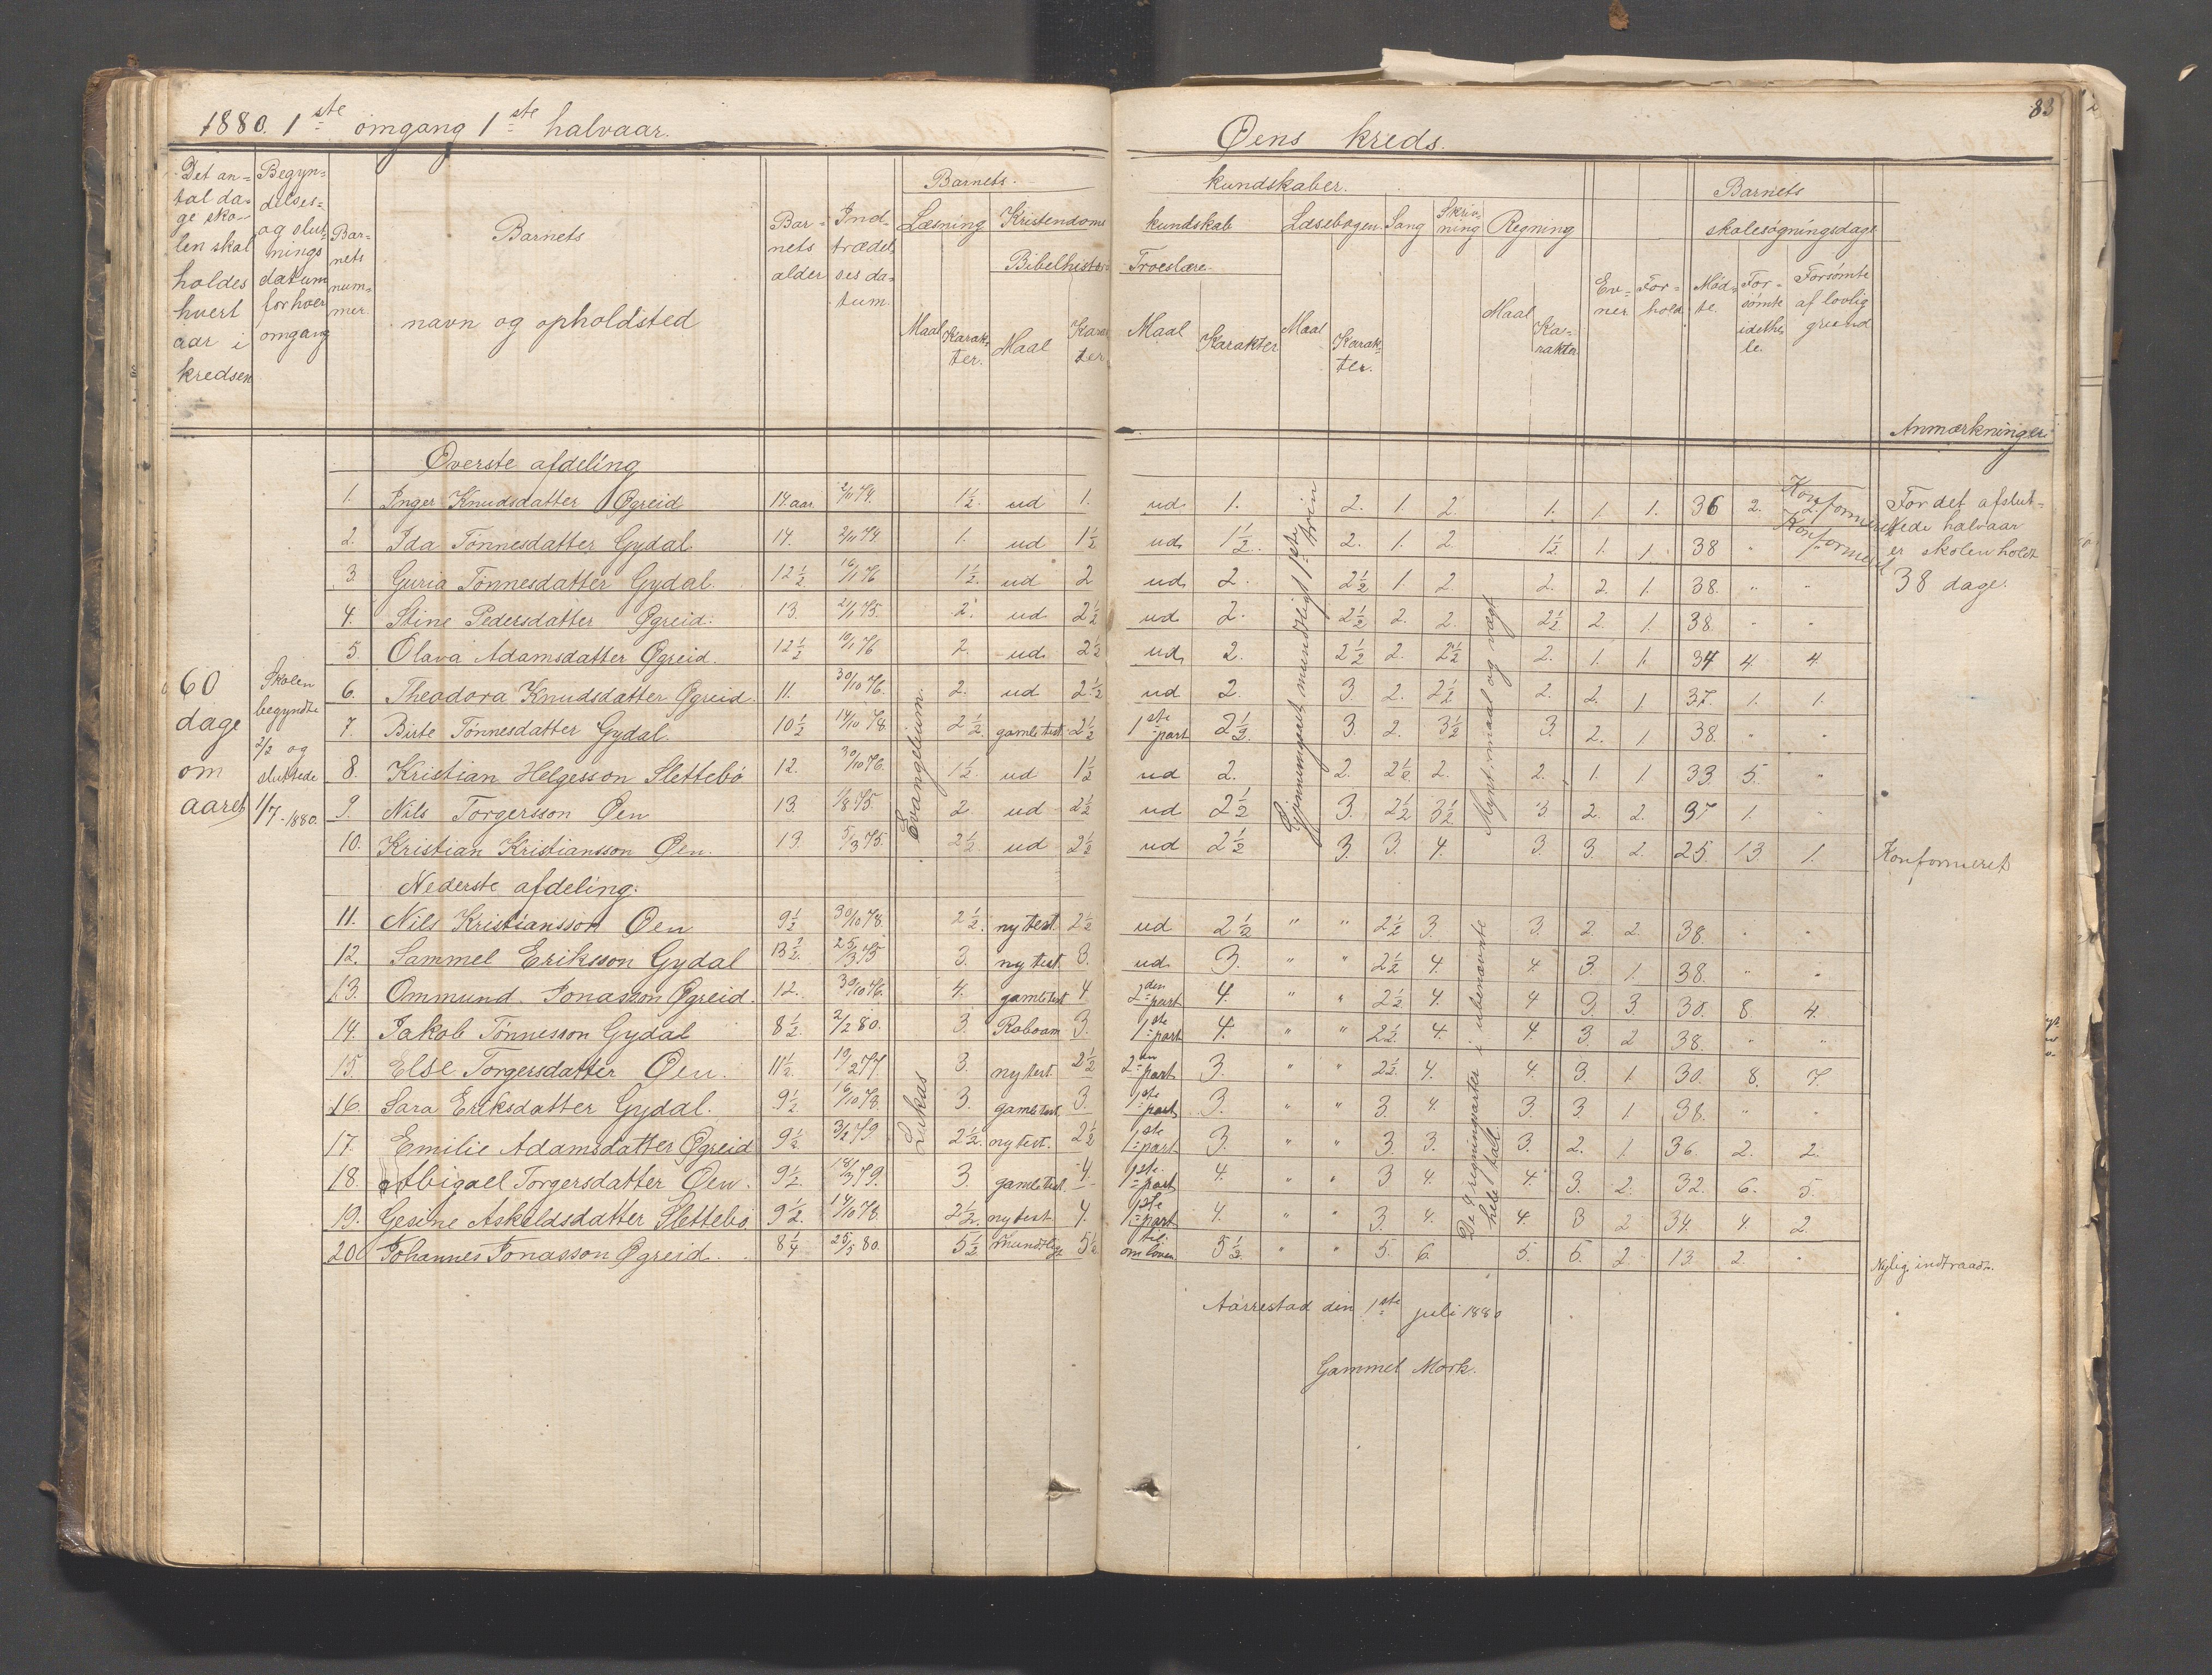 1880. 1ste omgang 1ste halvaar.
Øens kreds.
83
Det an= tal da= ge sko= len skal holdes hvert aar i kredsen
Begyn= delses= og slut= nings datum for hver omgang
Bar= nets num= mer.
Barnets navn og opholdsted
Bar= nets alder
Ind= trædel= ses da= tum.
Barnets kundskaber.
Læsning Maal Karak= ter.
Kristendoms kundskab
Bibelhistorie Maal Karak ter
Troeslære Maal Karakter
Læsebogen. Maal Karak= ter.
Sang
Skriv= ning
Regning Maal Ka= rakter
Ev= ner
For= hold
Barnets skolesøgningsdage
Mød= te.
For= sømte idethe le.
Forsømte af lovlig grund
Anmærkninger
60 dage om aaret
Skolen begyndte 2/2 og sluttede 1/7-1880.
Evangelium.
Lukas
Gjennemgaaet mundtligt 1ste trin
Mynt, maal og vægt
De 4 regningsarter i ubenævnte hele tal.
Øverste afdeling
1. Inger Knudsdatter Øgreid 14. aar. 2/11 74. 1½. ud 1. ud 1. 2. 1. 2. 1. 1. 1. 36 2. 2. Konformeret
2. Ida Tønnesdatter Gydal 14. 2/11 74. 1. ud 1½ ud 1½. 2. 1. 2. 1½ 1. 1. 38 " " Konformeret
3. Guria Tønnesdatter Gydal. 12½ 16/1 76 1½. ud 2 ud 2. 2½ 1. 2. 2. 2. 1. 38. " "
4. Stine Pedersdatter Øgreid. 13. 2/1 75. 2. ud 2½ ud 2. 2½ 2. 2. 2½ 2. 1. 38. " "
5. Olava Adamsdatter Øgreid. 12½ 10/1 76 2. ud 2½ ud 2. 2½ 2. 2½ 2. 1. 1. 34 4. 4.
6. Theodora Knudsdatter Øgreid. 11. 30/10 76. 2. ud 2½ ud 2. 3. 2. 2½ 2. 2. 1 37. 1. 1.
7. Birte Tønnesdatter Gydal. 10½ 14/10 78. 2½. gamle test. 2½ 1ste part 2½. 3. 2. 3½ 3. 2. 1. 38. " "
8. Kristian Helgesson Slettebø 12. 30/10 76. 1½. ud 1½ ud 2. 2. 2½. 2. 2. 1. 1 33 5. "
9. Nils Torgersson Øen 13 1/8 75. 2 ud 2½ ud 2½ 3. 2½ 3½ 3. 2. 2. 37 1. "
10. Kristian Kristiansson Øen. 13. 5/3 75. 2½ ud 2½ ud 2½ 3. 3. 4. 3. 3. 2. 25. 13. 1. Konformeret
Nederste afdeling.
11. Nils Kristiansson Øen 9½ 30/10 78. 2½. ny test. 2½ ud 2½ " " 2½ 3. 3. 2. 2. 38. " "
12. Sammel Eriksson Gydal 13½. 25/3 75 3. ny test. 3. ud. 3. " " 2½ 4. 4. 3. 1. 38. " "
13. Ommund. Jonasson Øgreid. 12. 30/10 76. 4. gamle test 4 2den part 4. " " 2½. 4. 4 3. 3. 30. 8. 4.
14. Jakob Tønnesson Gydal 8½. 2/2 80. 3. Roboam 3. 1ste part 4. " " 2½. 4. 4. 3. 2 38. " "
15. Else Torgersdatter Øen. 11½. 10/2 77. 3. ny test 2½ 2den part 3. " " 2½. 4. 4. 3. 1. 30. 8. 7.
16. Sara Eriksdatter Gydal. 9½. 16/10 78. 3. gamle test. 3. 1ste part 3. " " 3 4. 3. 3. 1 38. " "
17. Emilie Adamsdatter Øgreid 9½. 3/2 79 2½. ny test. 2½ 1ste part 3. " " 3. 3. 3. 2. 1 36. 2. 2.
18. Abigael Torgersdatter Øen. 9½. 18/3 79. 3. gamle test. 4. 1ste part 4. " " 3 4. 4. 3. 2. 32. 6. 5.
19. Gesine Askeldsdatter Slettebø 9½. 14/10 78. 2½. ny test 4. 1ste part 4. " " 3. 4. 4. 3 2 34. 4. 2.
20. Johannes Jonasson Øgreid. 8¼ 25/5 80. 5½ mundtlige 5½ til om loven 5½ " " 5. 6. 5. 5. 2. 13. 2. " Nylig indtraadt.
For det afslut= tede halvaar er skolen holdt 38 dage.
Aarrestad den 1ste juli 1880
Gammel Mork.